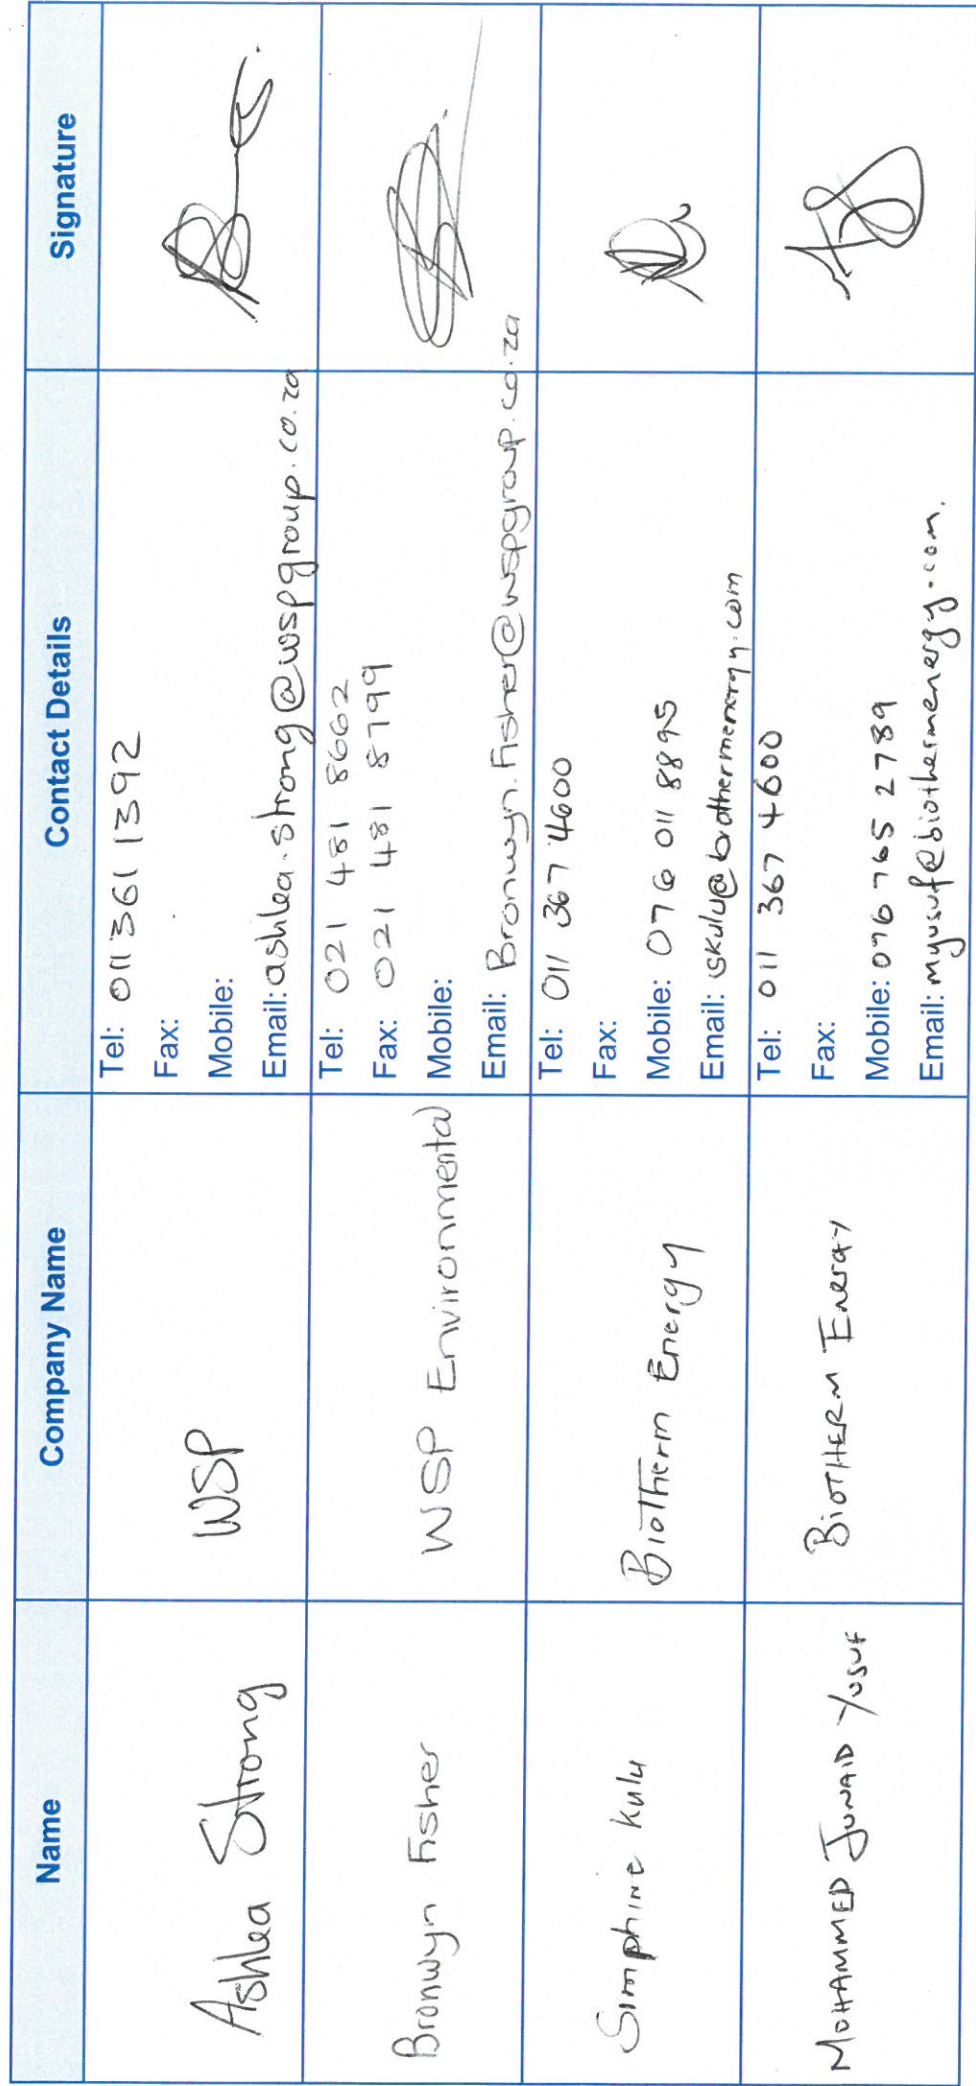 Name Company Name Contact Details Signature
Ashlea Strong WSP
Tel: 011 361 1392
Fax:
Mobile:
Email: ashlea.strong@wspgroup.co.za
Bronwyn Fisher WSP Environmental
Tel: 021 481 8662
Fax: 021 481 8799
Mobile:
Email: Bronwyn.Fisher@wspgroup.co.za
Simphine Kulu BioTherm Energy
Tel: 011 367 4600
Fax:
Mobile: 076 011 8895
Email: skulu@biothermenergy.com
MOHAMMED JUNAID YUSUF BIOTHERM ENERGY
Tel: 011 367 4600
Fax:
Mobile: 076 765 2789
Email: myusuf@biothermenergy.com.